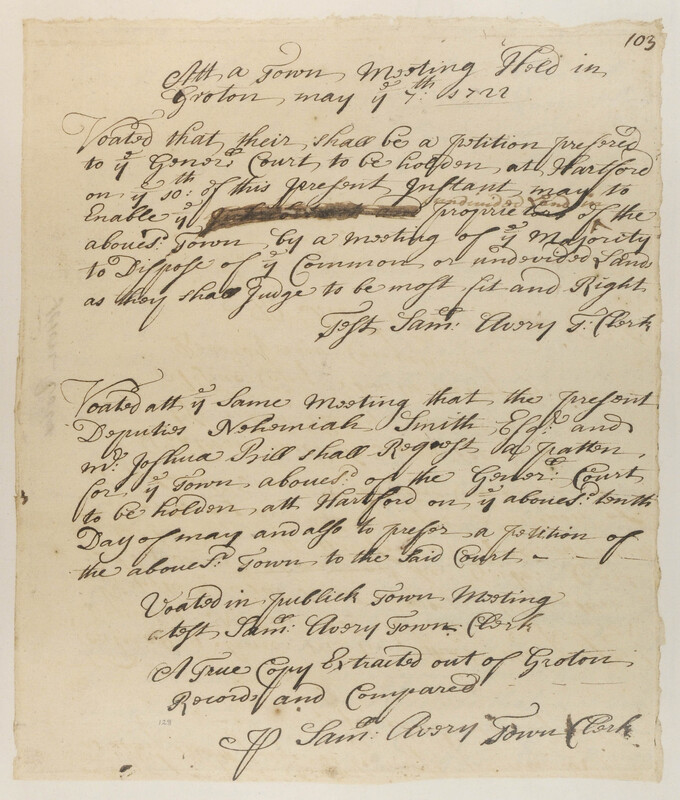 103
Att a Town Meeting Held in
Groton may ye 7th: 1722
Voated that their shall be a petition prefered
to ye Generll Court to be holden at Hartford
on ye 10th: of this present Instant may to
undivided Land in
Enable ye proprietors of the
aboves:d Town by a meeting of ye Majority
to Dispose of ye Common or undevided Land
as they shall Judge to be most fit and Right
Test Samll: Avery T: Clerk
Voated att ye Same Meeting that the present
Deputies Nehemiah Smith Esqr: and
mr: Joshua Bill shall Request a patten
for ye Town aboves:d of the Generll: Court
to be holden att Hartford on ye aboves:d tenth
Day of may and also to prefer a petition of
the aboves:d Town to the Said Court -
Voated in publick Town Meeting
test Samll: Avery Town Clerk
A True Copy Extracted out of Groton
Records and Compared
Samll: Avery Town Clerk
128